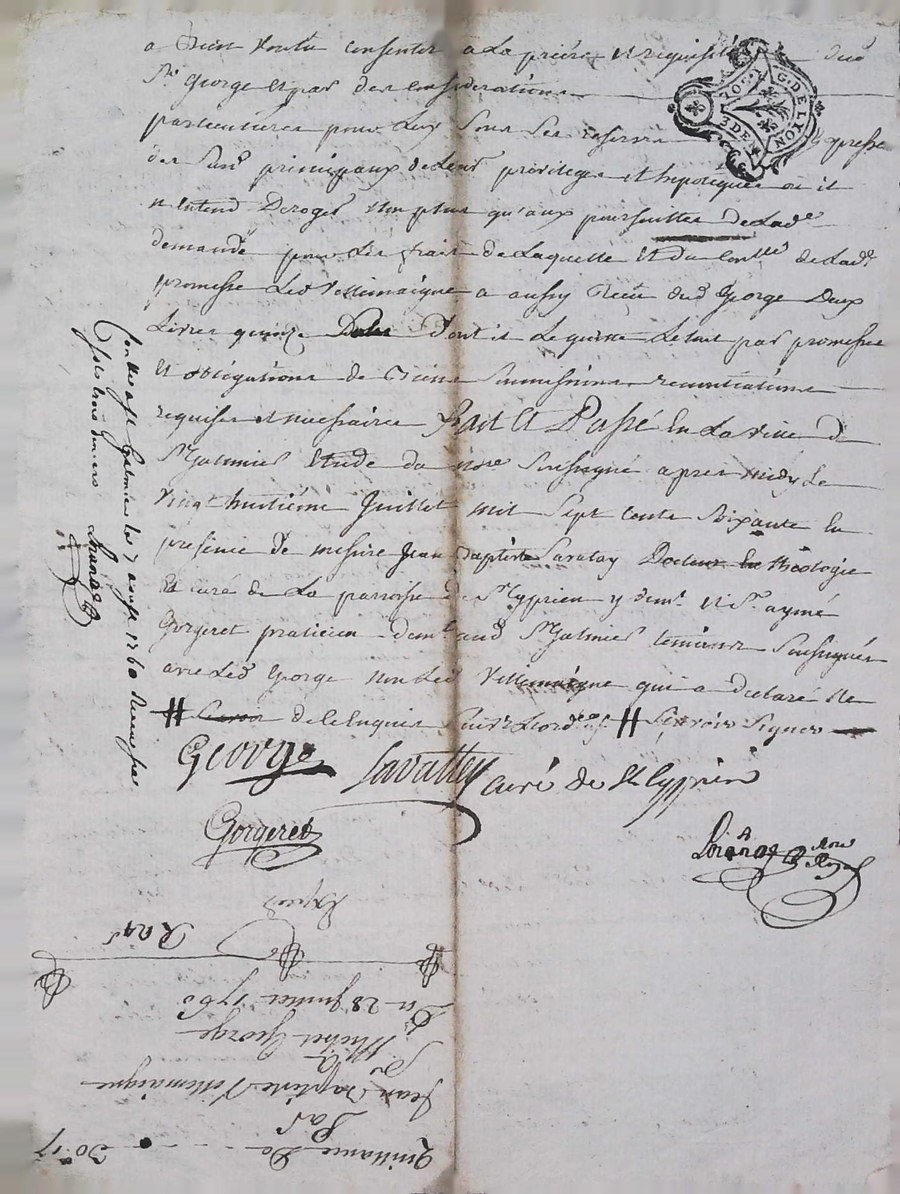 a bien voulu consentir a la priere et requisition dud
Sr. George et par des considerations
particulieres pour luy sous les reserves expresse
des principaux de leur privilege et hipoteque ou il
n'entend Deroger non plus qu'aux poursuittes de Lade
demande pour les frait de laquelle et du conlle de Lade
promesse Led Villemaigne a aussy Receu dud George Deux
Livres quinze dont il Le quitte Le tout par promesse
Et obligations de Biens Soumissions renontiations
requises et necessaires Fait Et Passé En La ville de
St Galmier Etude du nore soussigné apres midy Le
Vingt huitiéme Juillet mil Sept Cents Soixante En
presence de messire Jean Baptiste Lavatay Docteur en théologie
Et curé de La parroisse de St Cyprien y demt. et Sr. aymé
Gorgeret praticien demt. aud St Galmier temoins soussignés
avec Led George non Led Villemaigne qui a declaré ne
# de ce Enquis # Sçavoir Signer
George Lavattey curé de St Cyprien
Gorgeret
G. DE LYON
3 DEN.
Conllé a St Galmier Le 7 aoust 1760
Expédié
Du 28 Juillet 1760
Sr. Michel George
A
Sr. Jean Baptiste Villemaigne
Par
Quittance De 30 17